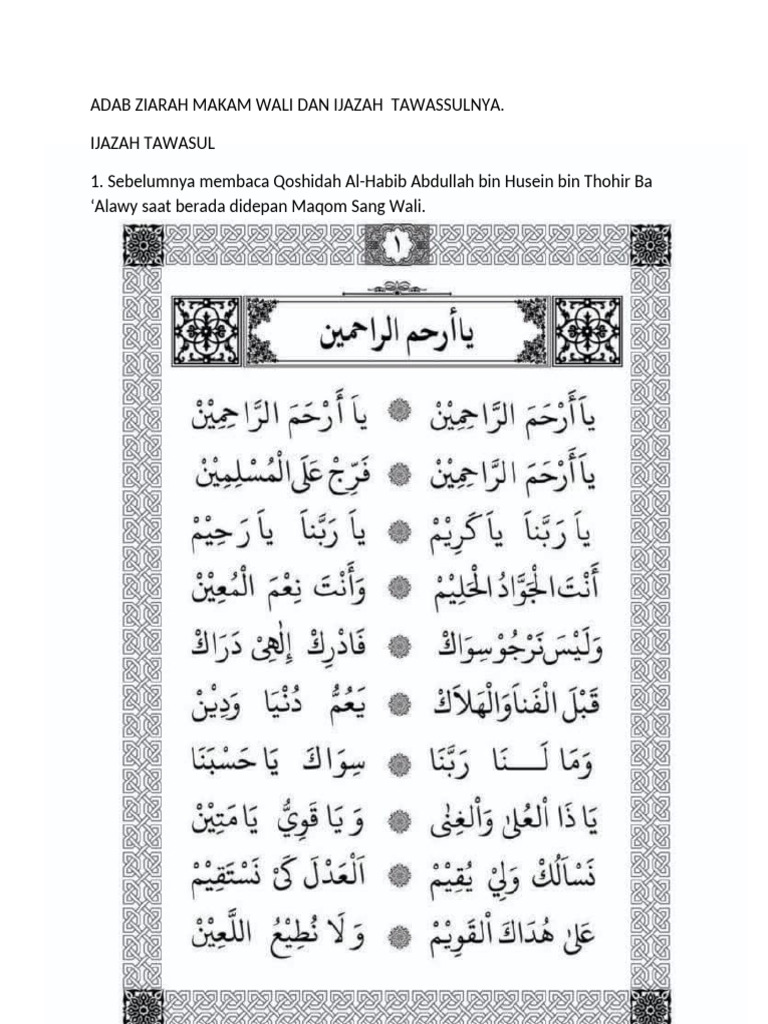 ADAB ZIARAH MAKAM WALI DAN IJAZAH TAWASSULNYA.
IJAZAH TAWASUL
1. Sebelumnya membaca Qoshidah Al-Habib Abdullah bin Husein bin Thohir Ba
‘Alawy saat berada didepan Maqom Sang Wali.
١
ياأرحم الراحمين
ياَأَرْحَمَ الرَّاحِمِيْنْ ياَ أَرْحَمَ الرَّاحِمِيْنْ
ياَأَرْحَمَ الرَّاحِمِيْنْ فَرِّجْ عَلَى الْمُسْلِمِيْنْ
ياَ رَبَّناَ ياَ كَرِيْمْ ياَ رَبَّناَ ياَ رَحِيْمْ
أَنْتَ الْجَوَّادُ الْحَلِيْمْ وَأَنْتَ نِعْمَ الْمُعِيْنْ
وَلَيْسَ نَرْجُوْ سِوَاكْ فَادْرِكْ إِلٰهِيْ دَرَاكْ
قَبْلَ الْفَناَوَالْهَلاَكْ يَعُمُّ دُنْيَا وَدِيْنْ
وَمَا لَـــنَا رَبَّنَا سِوَاكَ يَا حَسْبَنَا
يَا ذَا الْعُلىٰ وَالْغِنٰى وَ يَا قَوِيُّ يَا مَتِيْنْ
نَسْاَلُكْ وَلِيْ يُقِيْمْ اَلْعَدْلَ كَيْ نَسْتَقِيْمْ
عَلىٰ هُدَاكَ الْقَوِيْمْ وَ لَا نُطِيْعُ اللَّعِيْنْ